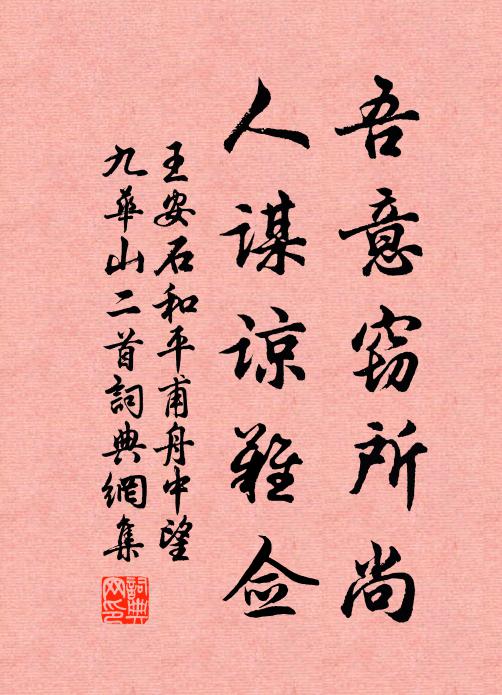 吾意窃所尚
人谋谅难佥
王安石和平甫舟中望
九華山二首詞典網集
詞典網印